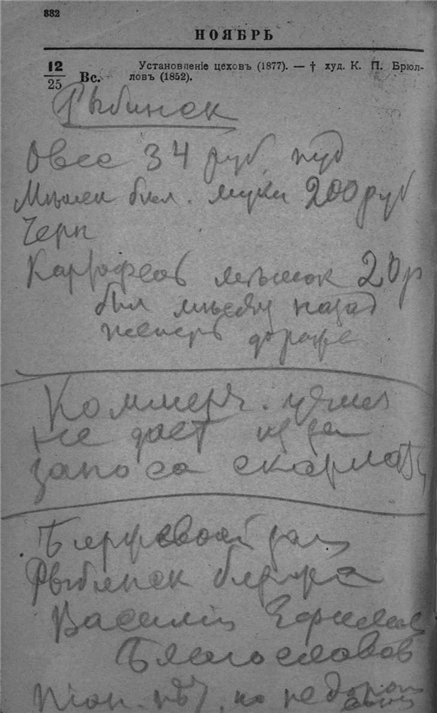 332
НОЯБРЬ
12/25 Вс. Установленіе цеховъ (1877). — † худ. К. П. Брюл-
ловъ (1852).
Рыбинск
Овес 34 руб. пуд
Мешок бел. муки 200 руб
Черн
Картофель мешок 20 р
был месяц назад
теперь дороже
Коммерч.
не дает из за
заноса скарлат
Биржевой зал
Рыбинск биржа
Василий
Благословов
но не